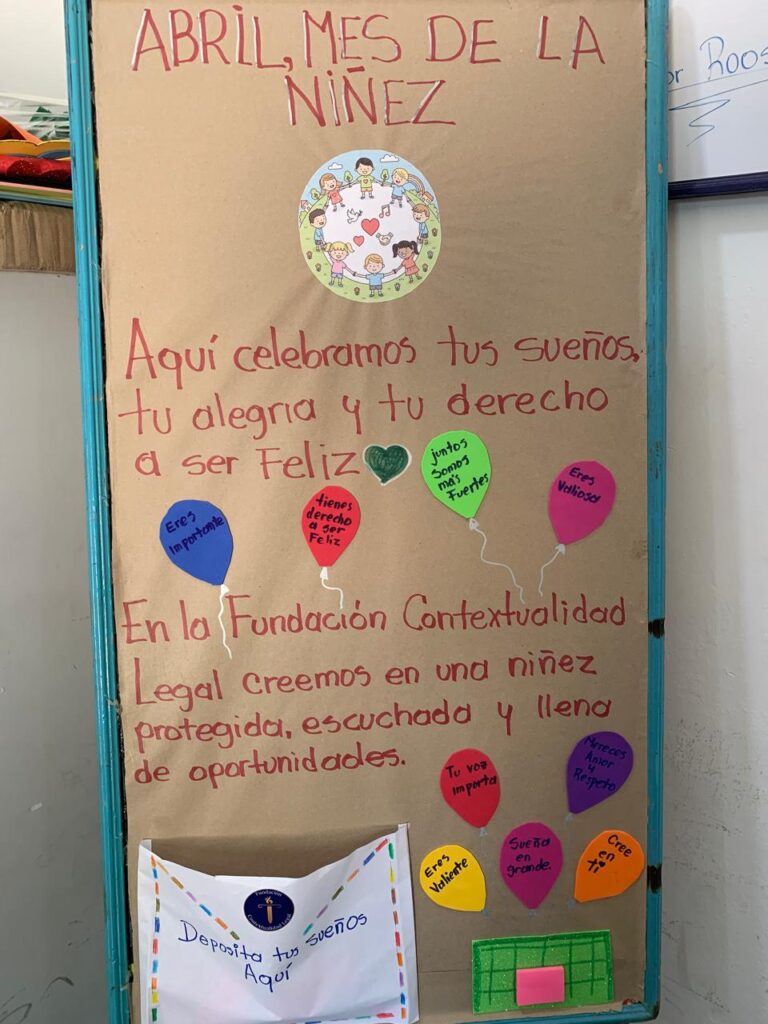 ABRIL, MES DE LA
NIÑEZ
Aquí celebramos tus sueños,
tu alegria y tu derecho
a ser Feliz
Eres
importante
tienes
derecho
a ser
Feliz
juntos
somos
más
Fuertes
Eres
Valiosa
En la Fundación Contextualidad
Legal creemos en una niñez
protegida, escuchada y llena
de oportunidades.
Tu voz
importa
Mereces
Amor
y
Respeto
Eres
Valiente
Sueña
en
grande.
Cree
en
ti
Fundación
Contextualidad Legal
Deposita tus sueños
Aquí
Roos